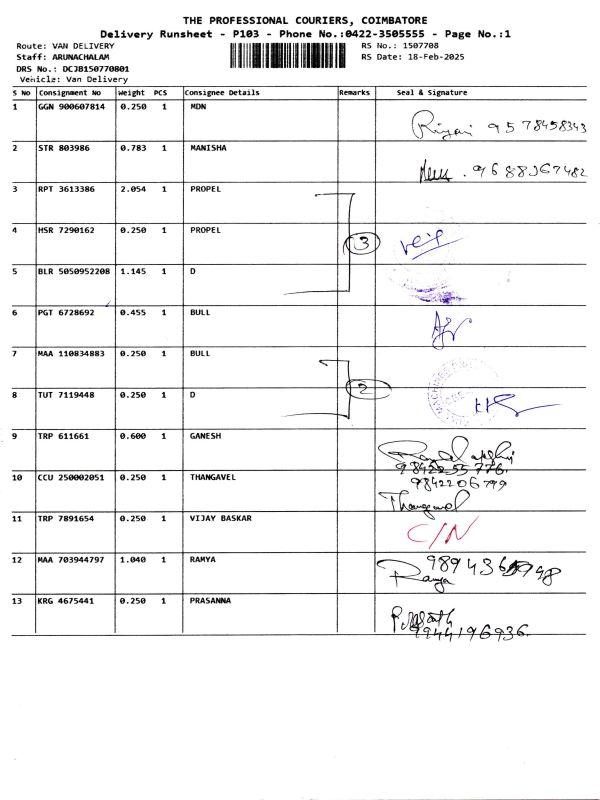 THE PROFESSIONAL COURIERS, COIMBATORE
Delivery Runsheet - P103 - Phone No.:0422-3505555 - Page No.:1
Route: VAN DELIVERY RS No.: 1507708
Staff: ARUNACHALAM RS Date: 18-Feb-2025
DRS No.: DCJB150770801
Vehicle: Van Delivery
S No Consignment No Weight PCS Consignee Details Remarks Seal & Signature
1 GGN 900607814 0.250 1 MDN
9578458343
2 STR 803986 0.783 1 MANISHA
9688367482
3 RPT 3613386 2.054 1 PROPEL
4 HSR 7290162 0.250 1 PROPEL 3
5 BLR 5050952208 1.145 1 D
6 PGT 6728692 0.455 1 BULL
7 MAA 110834883 0.250 1 BULL
2
8 TUT 7119448 0.250 1 D
9 TRP 611661 0.600 1 GANESH
9842255776.
10 CCU 250002051 0.250 1 THANGAVEL 9842206799
Thangavel
11 TRP 7891654 0.250 1 VIJAY BASKAR C/N
12 MAA 703944797 1.040 1 RAMYA
Ramya
13 KRG 4675441 0.250 1 PRASANNA
9944196936.